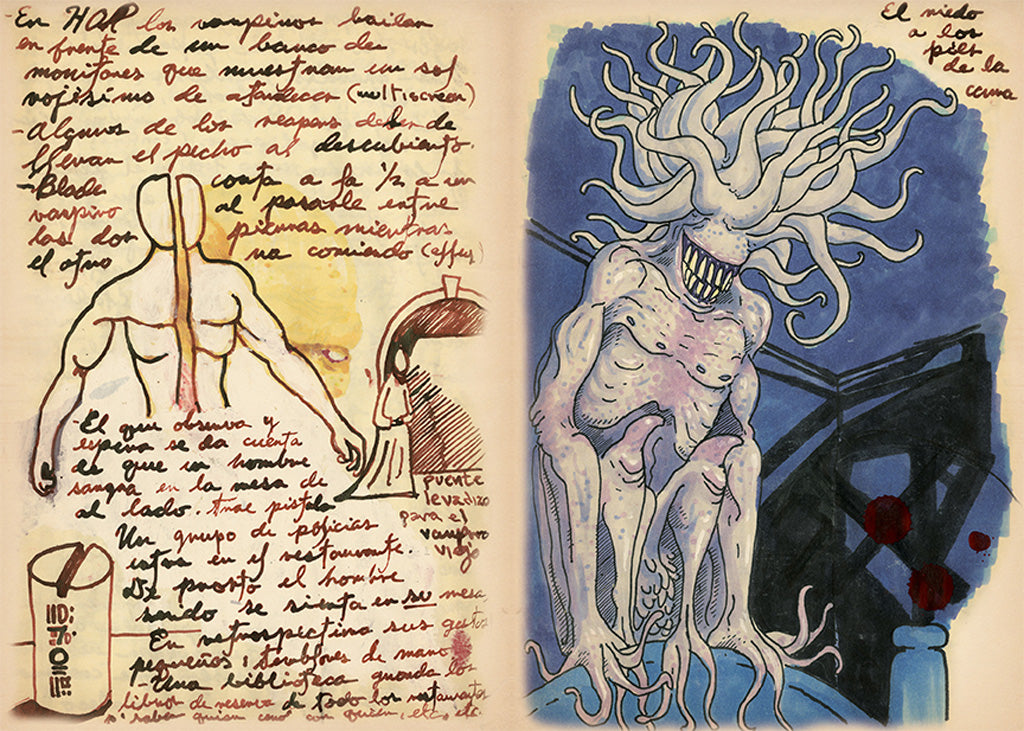 -En HOP los vampiros bailan
en frente de un banco de
monitores que muestran un sol
rojisimo de atardecer (multiscreen)
-Algunos de los reapers deben de
llevan el pecho al descubierto.
-Blade corta a la 1/2 a un
vampiro al pasarle entre
las dos piernas mientras
el otro va corriendo (effect)
-El que observa y
espera se da cuenta
de que un hombre
sangra en la mesa de
al lado. Trae pistola
Un grupo de policias
entra en el restaurante.
De pronto el hombre
herido se sienta en su mesa
En retrospectiva sus gestos
pequeños: temblores de mano
-Una biblioteca guarda los
libros de reserva de todo los restaurantes
p' saber quien cenó con quien, etc, etc.
puente
levadizo
para el
vampiro
viejo
El miedo
a los
pies
de la
cama